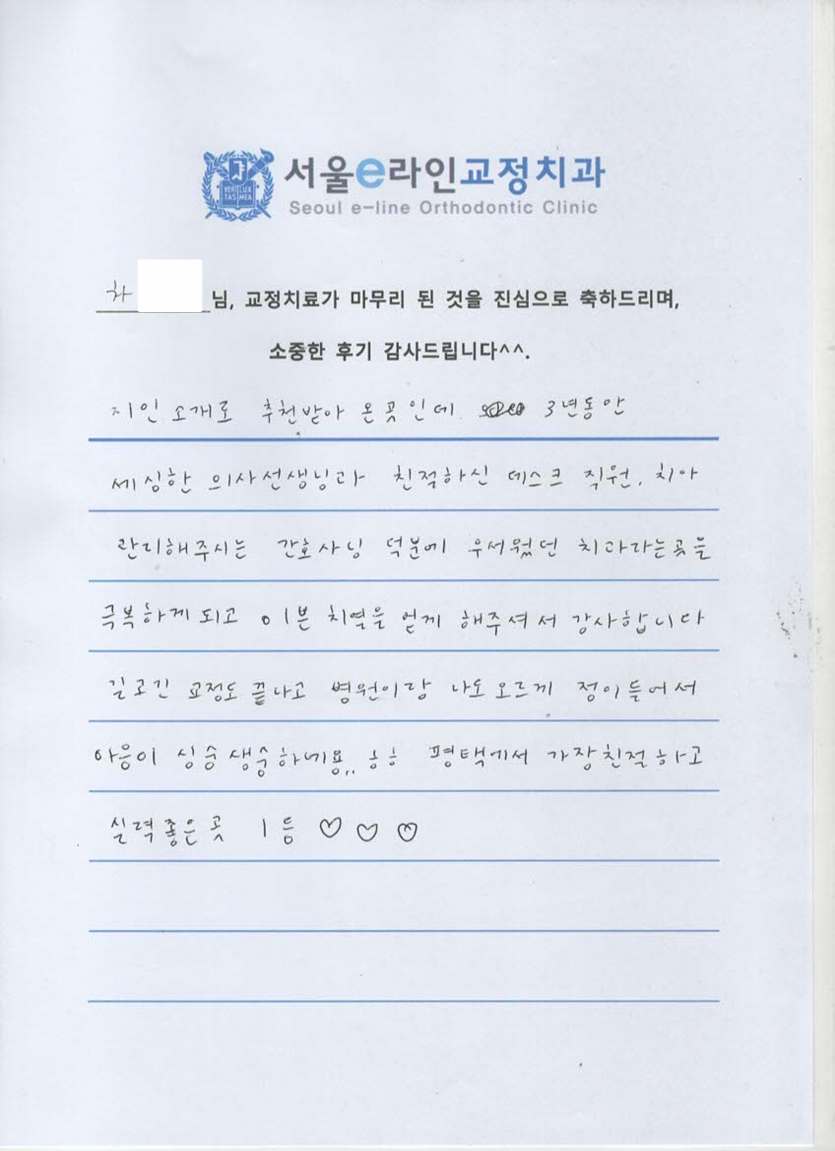 VERI LUX
TAS MEA
서울e라인교정치과
Seoul e-line Orthodontic Clinic
차 님, 교정치료가 마무리 된 것을 진심으로 축하드리며,
소중한 후기 감사드립니다^^.
지인소개로 추천받아 온곳인데 3년동안
세심한 의사선생님과 친절하신 데스크 직원, 치아
관리해주시는 간호사님 덕분에 무서웠던 치과라는곳을
극복하게 되고 이쁜 치열을 얻게 해주셔서 감사합니다
길고긴 교정도 끝나고 병원이랑 나도모르게 정이들어서
마음이 싱숭생숭하네용,, ㅎㅎ 평택에서 가장친절하고
실력좋은곳 1등 ♡ ♡ ♡